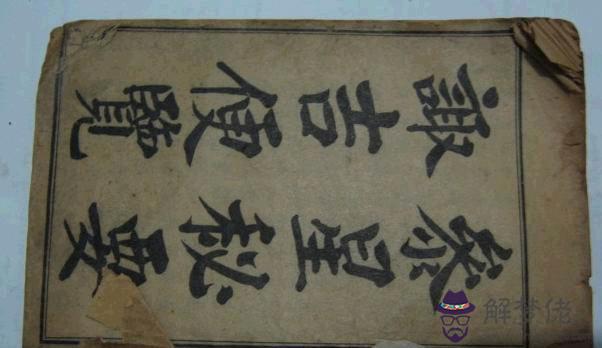 參星秘要
諏吉便覽
解梦佬